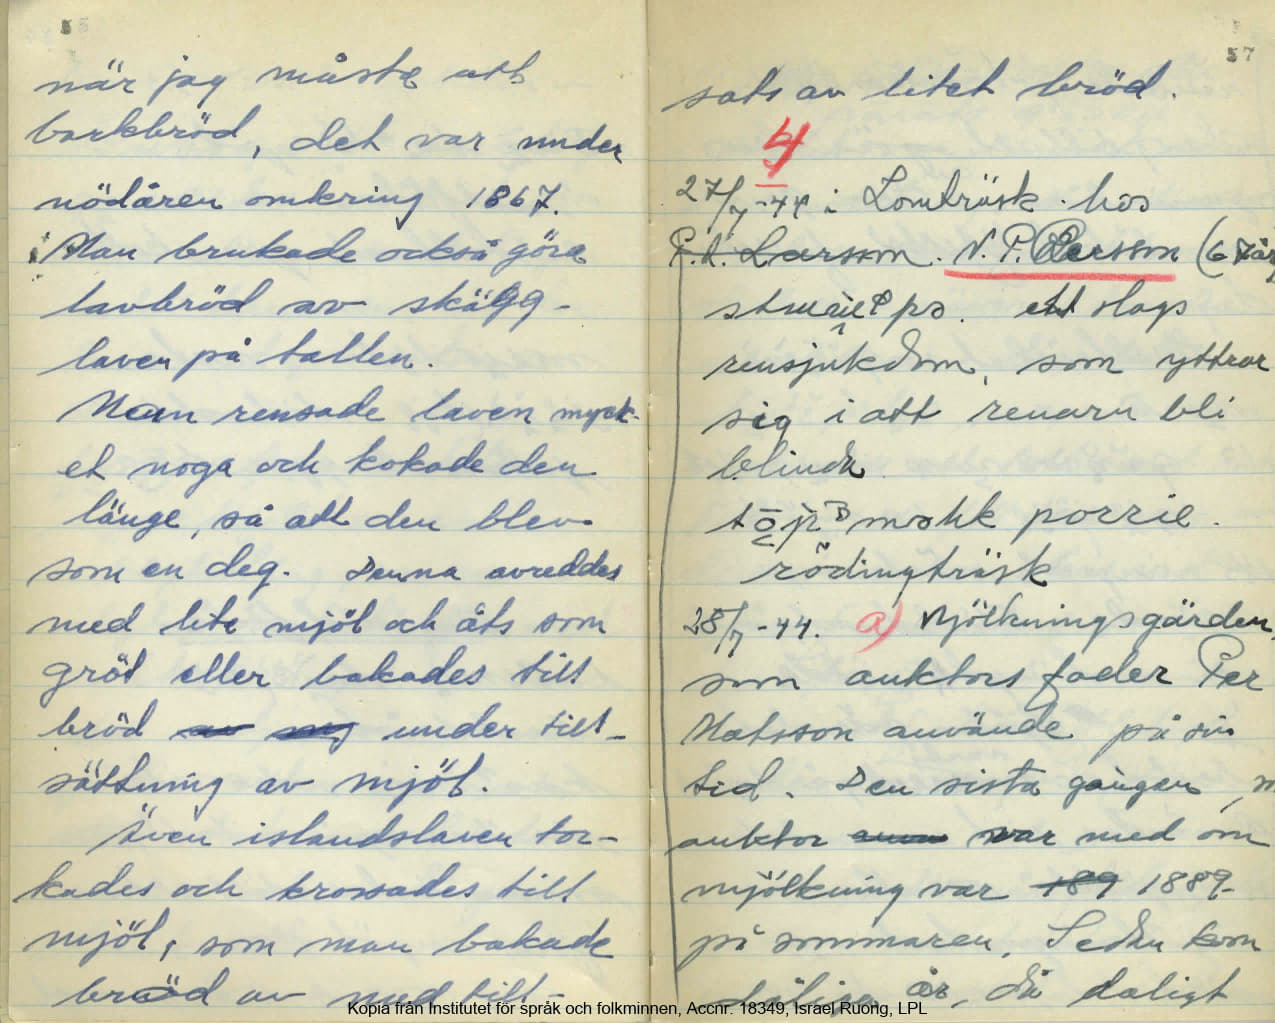 när jag måste äta
barkbröd, det var under
nödåren omkring 1867.
Man brukade också göra
lavbröd av skägg-
laven på tallen.
Man rensade laven myck-
et noga och kokade den
länge, så att den blev
som en deg. Denna avreddes
med lite mjöl och åts som
gröt eller bakades till
bröd under till-
sättning av mjöl.
Även islandslaven tor-
kades och krossades till
mjöl, som man bakade
bröd av med till-
57
sats av litet bröd.
4
27/7 -44 i Lomträsk hos
Larsson. N. P. Persson (67 år
ett slags
rensjukdom, som yttrar
sig i att renarna bli
blinda
rödingträsk
28/7 -44. a) Mjölkningsgärden,
som auktors fader Per
Matsson använde på sin
tid. Den sista gången,
auktor var med om
mjölkning var 189 1889
på sommaren. Sedan kom
år, då dåligt
Kopia från Institutet för språk och folkminnen, Accnr. 18349, Israel Ruong, LPL